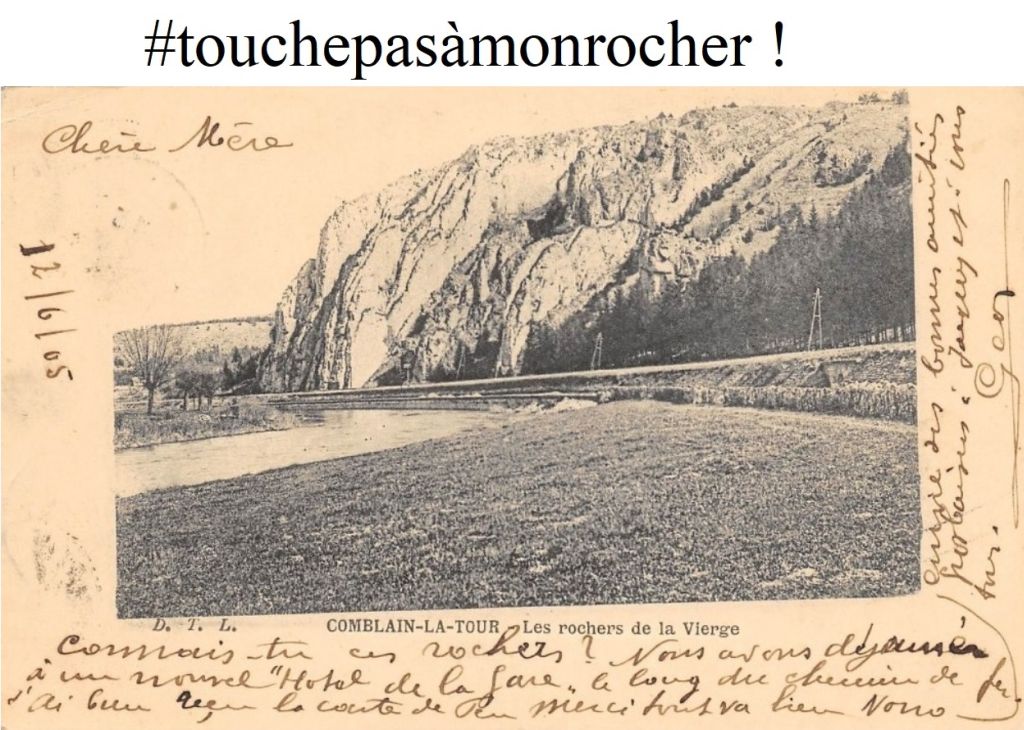 #touchepasàmonrocher !
Chère Mère
12/6/05
D. T. L. COMBLAIN-LA-TOUR - Les rochers de la Vierge
Connais-tu ces rochers ? Nous avons déjeuné
à un nouvel "Hotel de la Gare" le long du chemin de fer.
J'ai bien reçu la carte de merci tout va bien Nous
des bonnes amitiés
et à vous
tous.
Geo